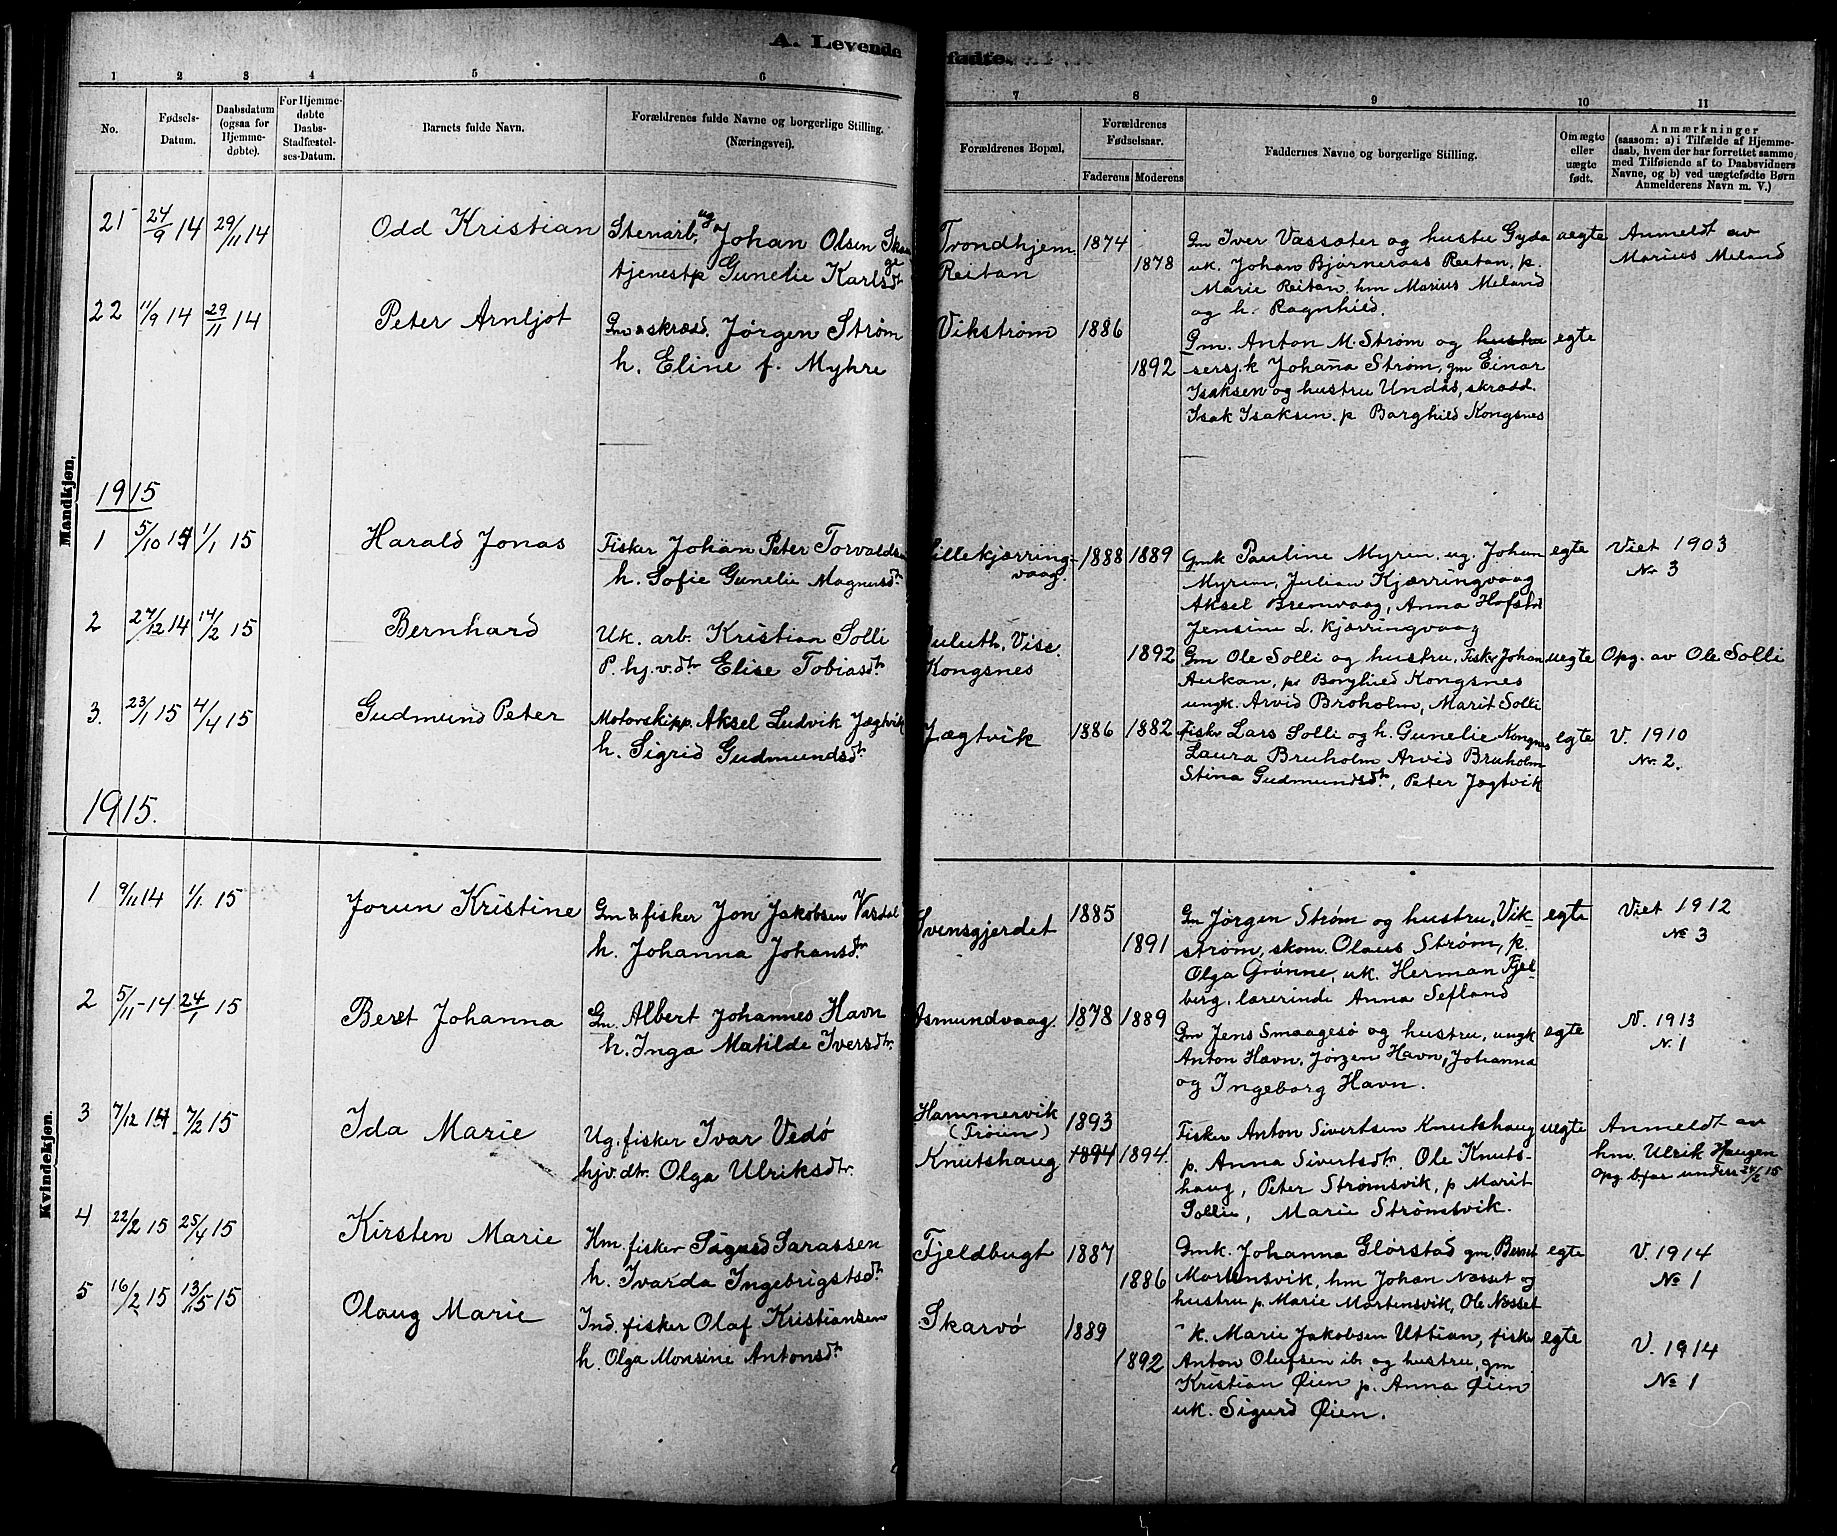 A. Levende fødte.
1 2 3 4 5 6 7 8 9 10 11
No.
Fødsels-Datum.
Daabsdatum (ogsaa for Hjemme-døbte).
For Hjemme-døbte Daabs-Stadfæstel-ses-Datum.
Barnets fulde Navn.
Forældrenes fulde Navne og borgerlige Stilling. (Næringsvei).
Forældrenes Bopæl.
Forældrenes Fødselsaar.
Faderens Moderens
Faddernes Navne og borgerlige Stilling.
Om ægte eller uægte født.
Anmærkninger
(saasom: a) i Tilfælde af Hjemme-
daab, hvem der har forrettet samme,
med Tilføiende af to Daabsvidners
Navne, og b) ved uægtefødte Børn
Anmelderens Navn m. V.)
Mandkjøn.
21 24/9 14 29/11 14 Odd Kristian
Stenarb, ug Johan Olsen Skauge
tjenestp Gunelie Karlsdtr
Trondhjem 1874
Reitan 1878
Gm Iver Vassater og hustru Gyda
uk. Johan Bjørneraas Reitan, p.
Marie Reitan. hm Marius Meland
og h. Ragnhild.
uegte
Anmeldt av
Marius Meland
22 11/9 14 29/11 14 Peter Arnljot
Gm & skrædd. Jørgen Strøm
h. Eline f. Myhre
Vikstrøm 1886
1892
Gm. Anton M. Strøm og hustru
sersj.k Johana Strøm, gm Einar
Isaksen og hustru Undås, skrædd.
Isak Isaksen, p Borghild Kongsnes
egte
1915
1 5/10 14 1/1 15 Harald Jonas
Fisker Johan Peter Torvaldsen
h. Sofie Gunelie Magnusdtr
Lillekjærring-
vaag. 1888 1889
Gmk Pauline Myren, ug. Johan
Myren, Julian Kjærringvaag
Aksel Bremvaag, Anna Hofstad
Jensine L. Kjærringvaag
egte
Viet 1903
No 3
2 27/12 14 14/2 15 Bernhard
Uk. arb. Kristian Solli
P. hj.v.dtr Elise Tobiasdtr
Duluth, Visc.
Kongsnes 1892
Gm Ole Solli og hustru, Fisker Johan
Aukan, p. Borghild Kongsnes
ungk. Arvid Broholm, Marit Solli
uegte
Opg. av Ole Solli
3. 23/1 15 4/4 15 Gudmund Peter
Motorskipp. Aksel Ludvik Jægtvik
h. Sigrid Gudmundsdtr
Jægtvik 1886 1882
fisker Lars Solli og h. Gunelie Kongsnes
Laura Bruholm Arvid Bruholm
Stina Gudmundsdtr, Peter Jægtvik
egte
V. 1910
Nr. 2.
1915.
Kvindekjøn.
1 9/11 14 1/1. 15 Jorun Kristine
Gm & fisker Jon Jakobsen Vasdal
h. Johanna Johansdtr
Svensgjerdet 1885
1891
Gm Jørgen Strøm og hustru, Vik-
strøm, skom. Olaus Strøm, p.
Olga Grønne, uk. Herman Fjel-
berg, lærerinde Anna Sefland
egte
Viet 1912
No 3
2 5/11-14 24/1 15 Beret Johanna
Gm. Albert Johannes Havn
h. Inga Matilde Iversdtr.
Asmundvaag. 1878 1889
Gm Jens Smaagesø og hustru, ungk
Anton Havn, Jørgen Havn, Johanna
og Ingeborg Havn.
egte
V. 1913
N. 1
3 7/12 14 7/2 15 Ida Marie
Ug. fisker Ivar Vedø
hjv.dtr. Olga Ulriksdtr.
Hammervik
(Frøien) 1893
Knutshaug 1894 1894.
Fisker Anton Sivertsen Knutshaug
p. Anna Sivertsdtr. Ole Knuts-
haug, Peter Strømsvik, p Marit
Sollie, Marie Strømsvik.
uegte
Anmeldt av
hm. Ulrik Haugen
Opg. bfar unders 24/2 15
4 22/2 15 25/4 15 Kirsten Marie
Hm. fisker Sigurd Sarassen
h. Ivarda Ingebrigtsdtr
Fjeldbugt 1887
1886
Gmk. Johanna Glørstad gm. Bernt
Mortensvik, hm Johan Nesset og
hustru p. Marie Mortensvik, Ole Nesset
egte
V. 1914
No 1
5 16/2 15 13/5 15 Olaug Marie
Ind. fisker Olaf Kristiansen
h. Olga Monsine Antonsdtr
Skarvø 1889
1892
" k. Marie Jakobsen Uttian, fisker
Anton Olufsen ib og hustru, gm
Kristian Øien p. Anna Øien
uk. Sigurd Øien.
egte
V. 1914
No 1